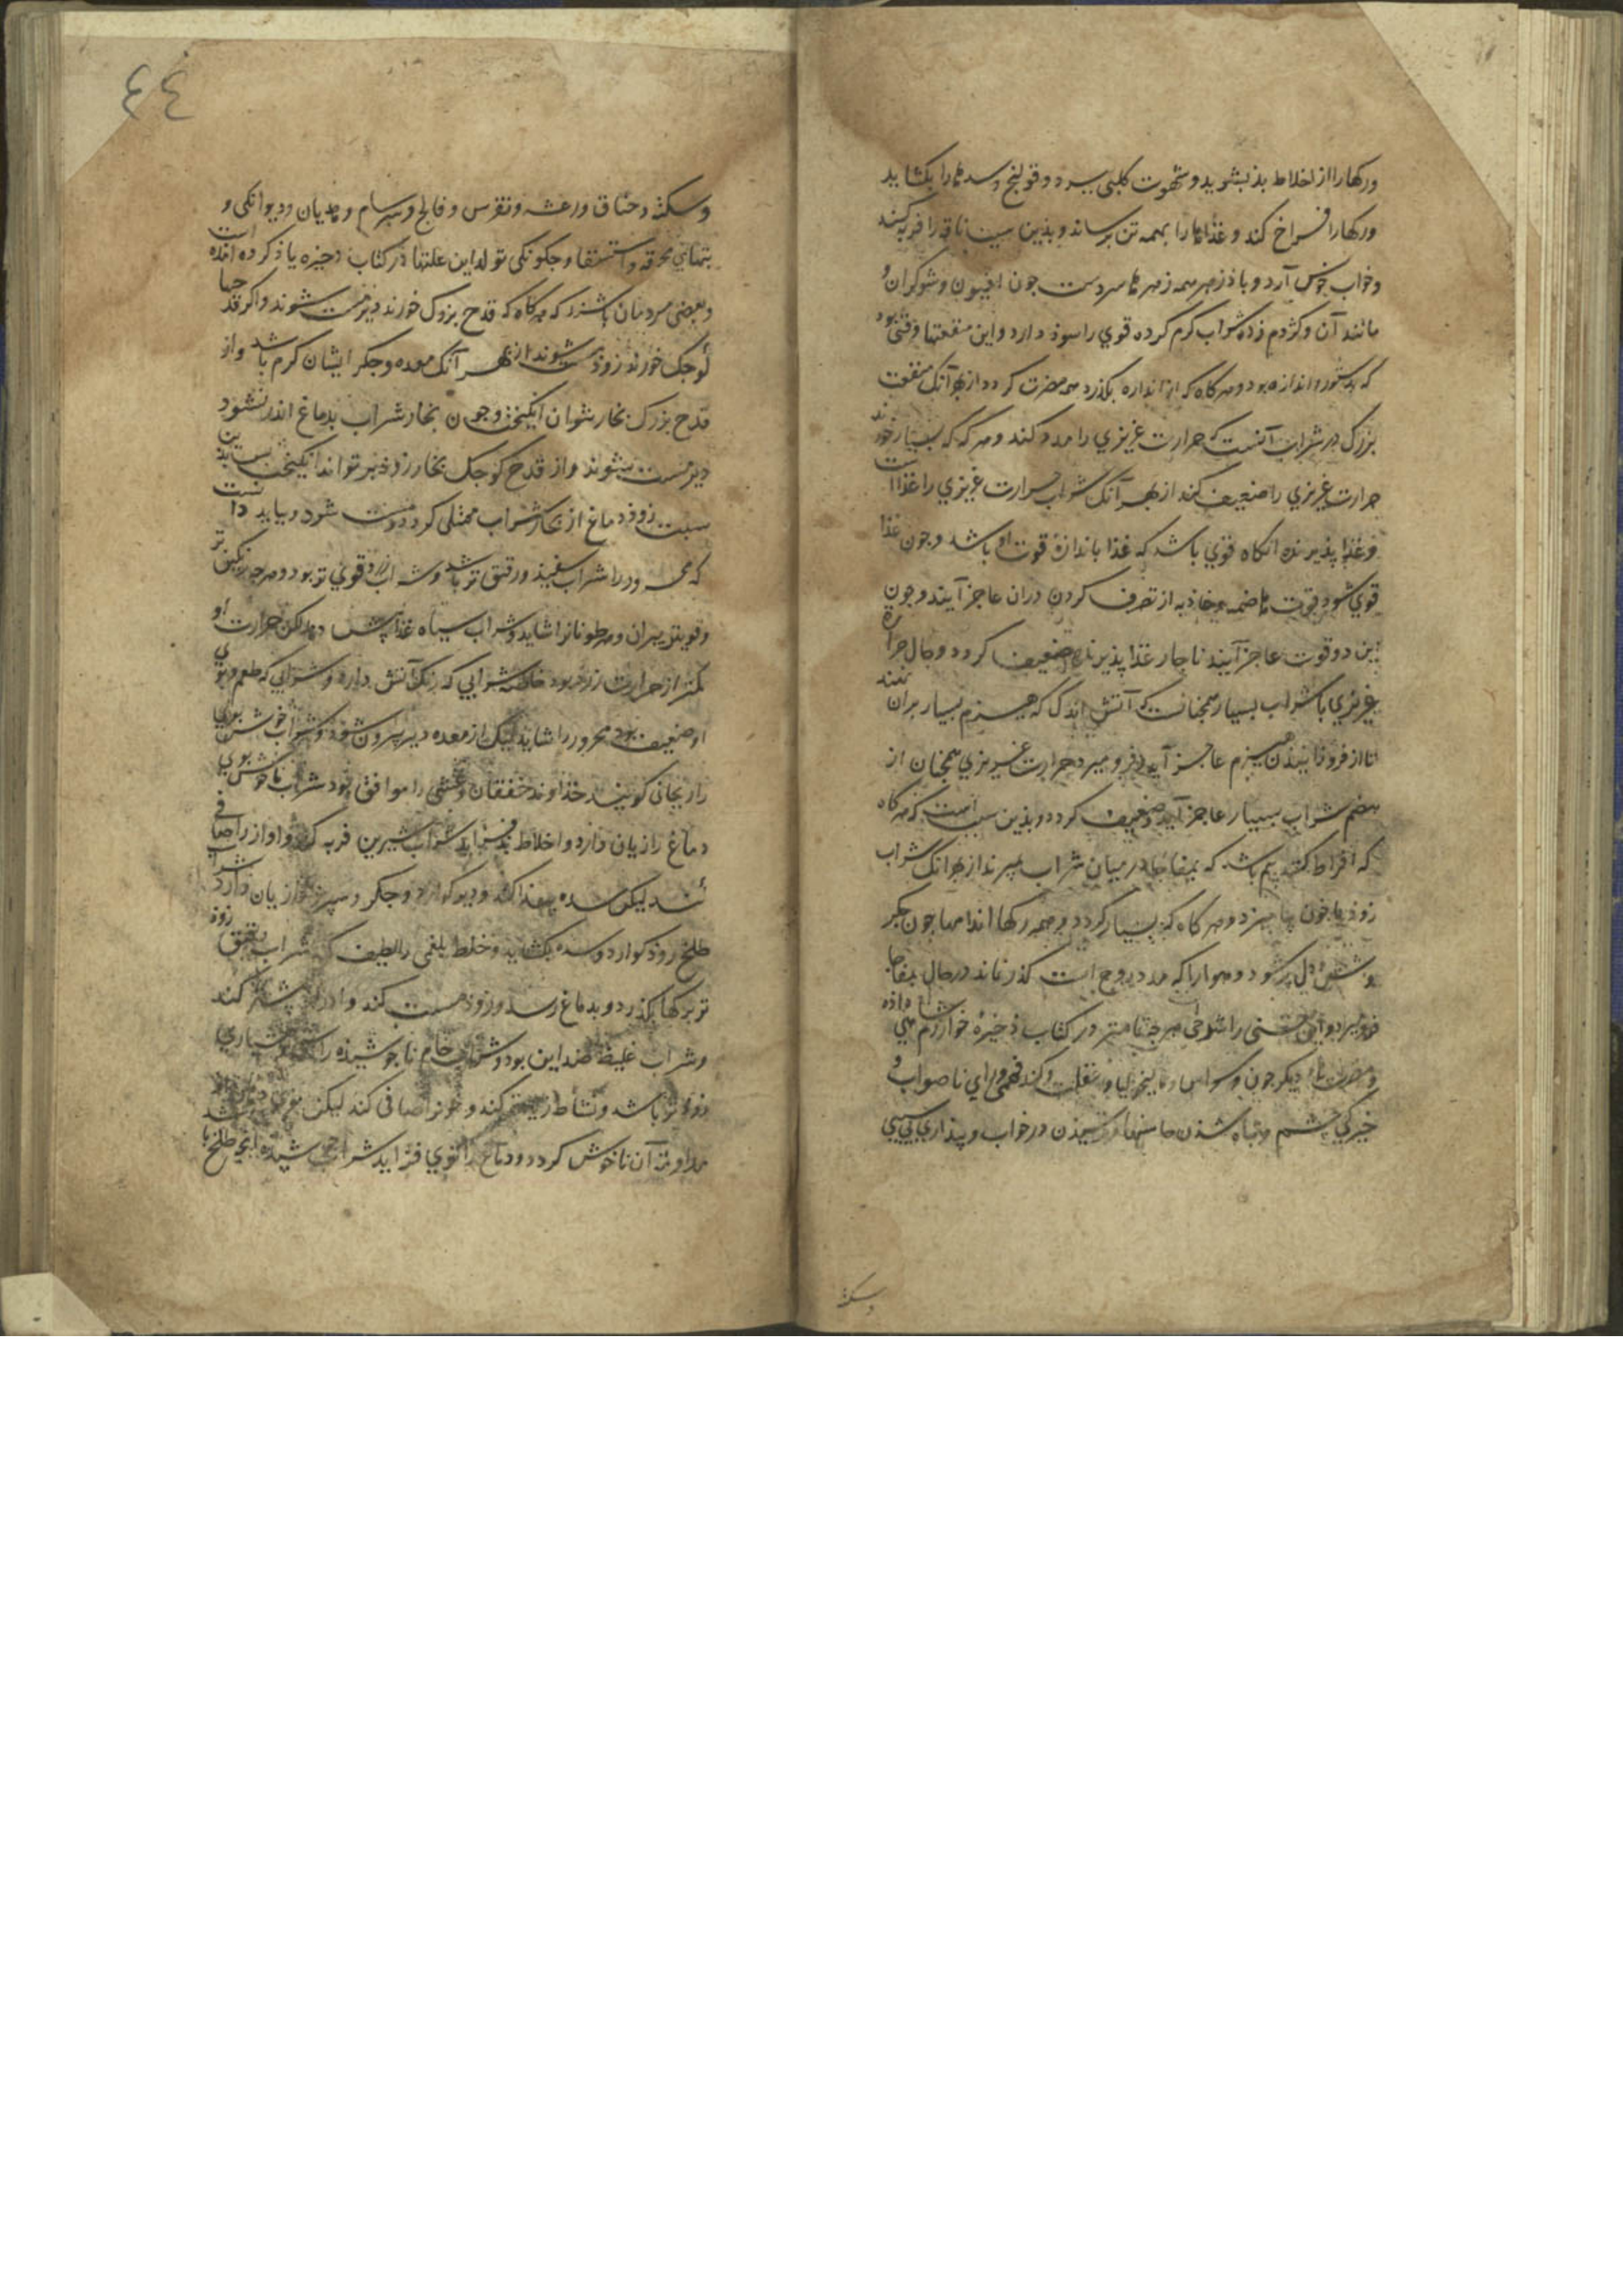 ورکهارا از اخلاط بذ بشوید و شهوت کلبی ببرد و قولنج و سدها را بکشاید
ورکهارا فراخ کند و غذاها را بهمه تن برساند و بذین سبب ناقه را فربه کند
وخواب خوش آرد و باذزهر همه زهرها سردست جون افیون و شوکران و
مانند آن و کژدم زده شراب کرم کرده قوي را سوذ دارد و این منفعتها وقتی بود
که بدستور و اندازه بود و هرکاه که از اندازه بکذرد همه مضرت کردد از بهر آنک منفعت
بزرک در شراب آنست که حرارت غریزي را مدد کند و هرکه که بسیار خورند
حرارت غریزي را ضعیف کند از بهر آنک شراب حرارت غریزي را غذا است
وغذا پذیرنده انکاه قوي باشد که غذا باندازه قوت او باشد و جون غذا
قوي شود قوت هاضمه و جاذبه از تصرف کردن دران عاجز آیند و جون
این دو قوت عاجز آیند ناجار غذا پذیرنده ضعیف کردد و حال حرارة
غریزي با شراب بسیار همجنانست که آتش اندک که هیزم بسیار بران نهند
تا از فروزانیدن هیزم عاجز آید و فرو میرد حرارت غریزي همجنان از
هضم شراب بسیار عاجز آید و ضعیف کردد و بذین سبب است که هرکاه
که افراط کنند بیم باشد که بمفاجا در میان شراب بمیرند از بهر آنک شراب
زوذ با خون بیامیزد و هرکاه که بسیار کردد و همه رکها اندامها جون جکر
و شش و دل پر شود و هوا را که مدد روح است کذر نماند در حال بمفاجا
فرو میرد و این معنی را شرحی هرجه تمامتر در کتاب ذخیره خوارزم شاهی داذه
و مضرت هاء دیکر جون وسواس و مالیخولیا و غفلت و کند فهمی و راي ناصواب و
خیرکی جشم و تباه شدن حاستها و ترسیدن در خواب و بیذاري بی سببی
وسکته
٤٤
وسکته و خناق و رعشه و نقرس و فالج و سرسام و هذیان و دیوانکی و
تبهاي محرقه و استسقا و جکونکی تولد این علتها در کتاب ذخیره یاذ کرده آمده است
و بعضی مردمان باشند که هرکاه که قدح بزرک خورند دیر مست شوند و اکر قدحها
کوجک خورند زوذ مست شوند از بهر آنک معده و جکر ایشان کرم باشد و از
قدح بزرک بخار نتوان انکیخت و جون بخار شراب بدماغ اندر نشود
دیر مست شوند و از قدح کوجک بخار زوذ بر تواند انکیخت بدین
سبب زوذ دماغ از بخار شراب ممتلی کردد و مست شود و بباید دانست
که محرور را شراب سفید و رقیق تر باشد و شراب زرد قوي تر بود و هرجه رنکین تر
و قویتر پیران و مرطوبانرا شاید و شراب سیاه غذا بیش دهد لکن حرارت او
کمتر از حرارت زرد بود خاصه شرابی که رنک آتش دارد و شرابی که طعم و بوي
او ضعیف بود محرور را شاید لیک از معده دیر بیرون شود و شراب خوش بوي
را ریحانی کویند خداوند خفقان و غشی را موافق بود شراب ناخوش بوي
دماغ را زیان دارد و اخلاط بد فزاید شراب شیرین فربه کند و آواز را صافی
کند لیکن سده پیذا کند و دیر کوارد و جکر و سپرز را زیان دارد شراب
طلخ زوذ کوارد و سده بکشاید و خلط بلغمی را لطیف کند شراب رقیق زوذ
تر برکها بکذرد و بدماغ رسد و زوذ مست کند و ادرار بیشتر کند
و شراب غلیظ ضد این بود و شراب خام ناجوشیذه را مستی و هشیاري
زوذتر باشد و نشاط زیادت کند و خونرا صافی کند لیکن
مداومت آن ناخوش کردد و دماغ را قوي فزاید شراب جوشیده آنج طلخ با